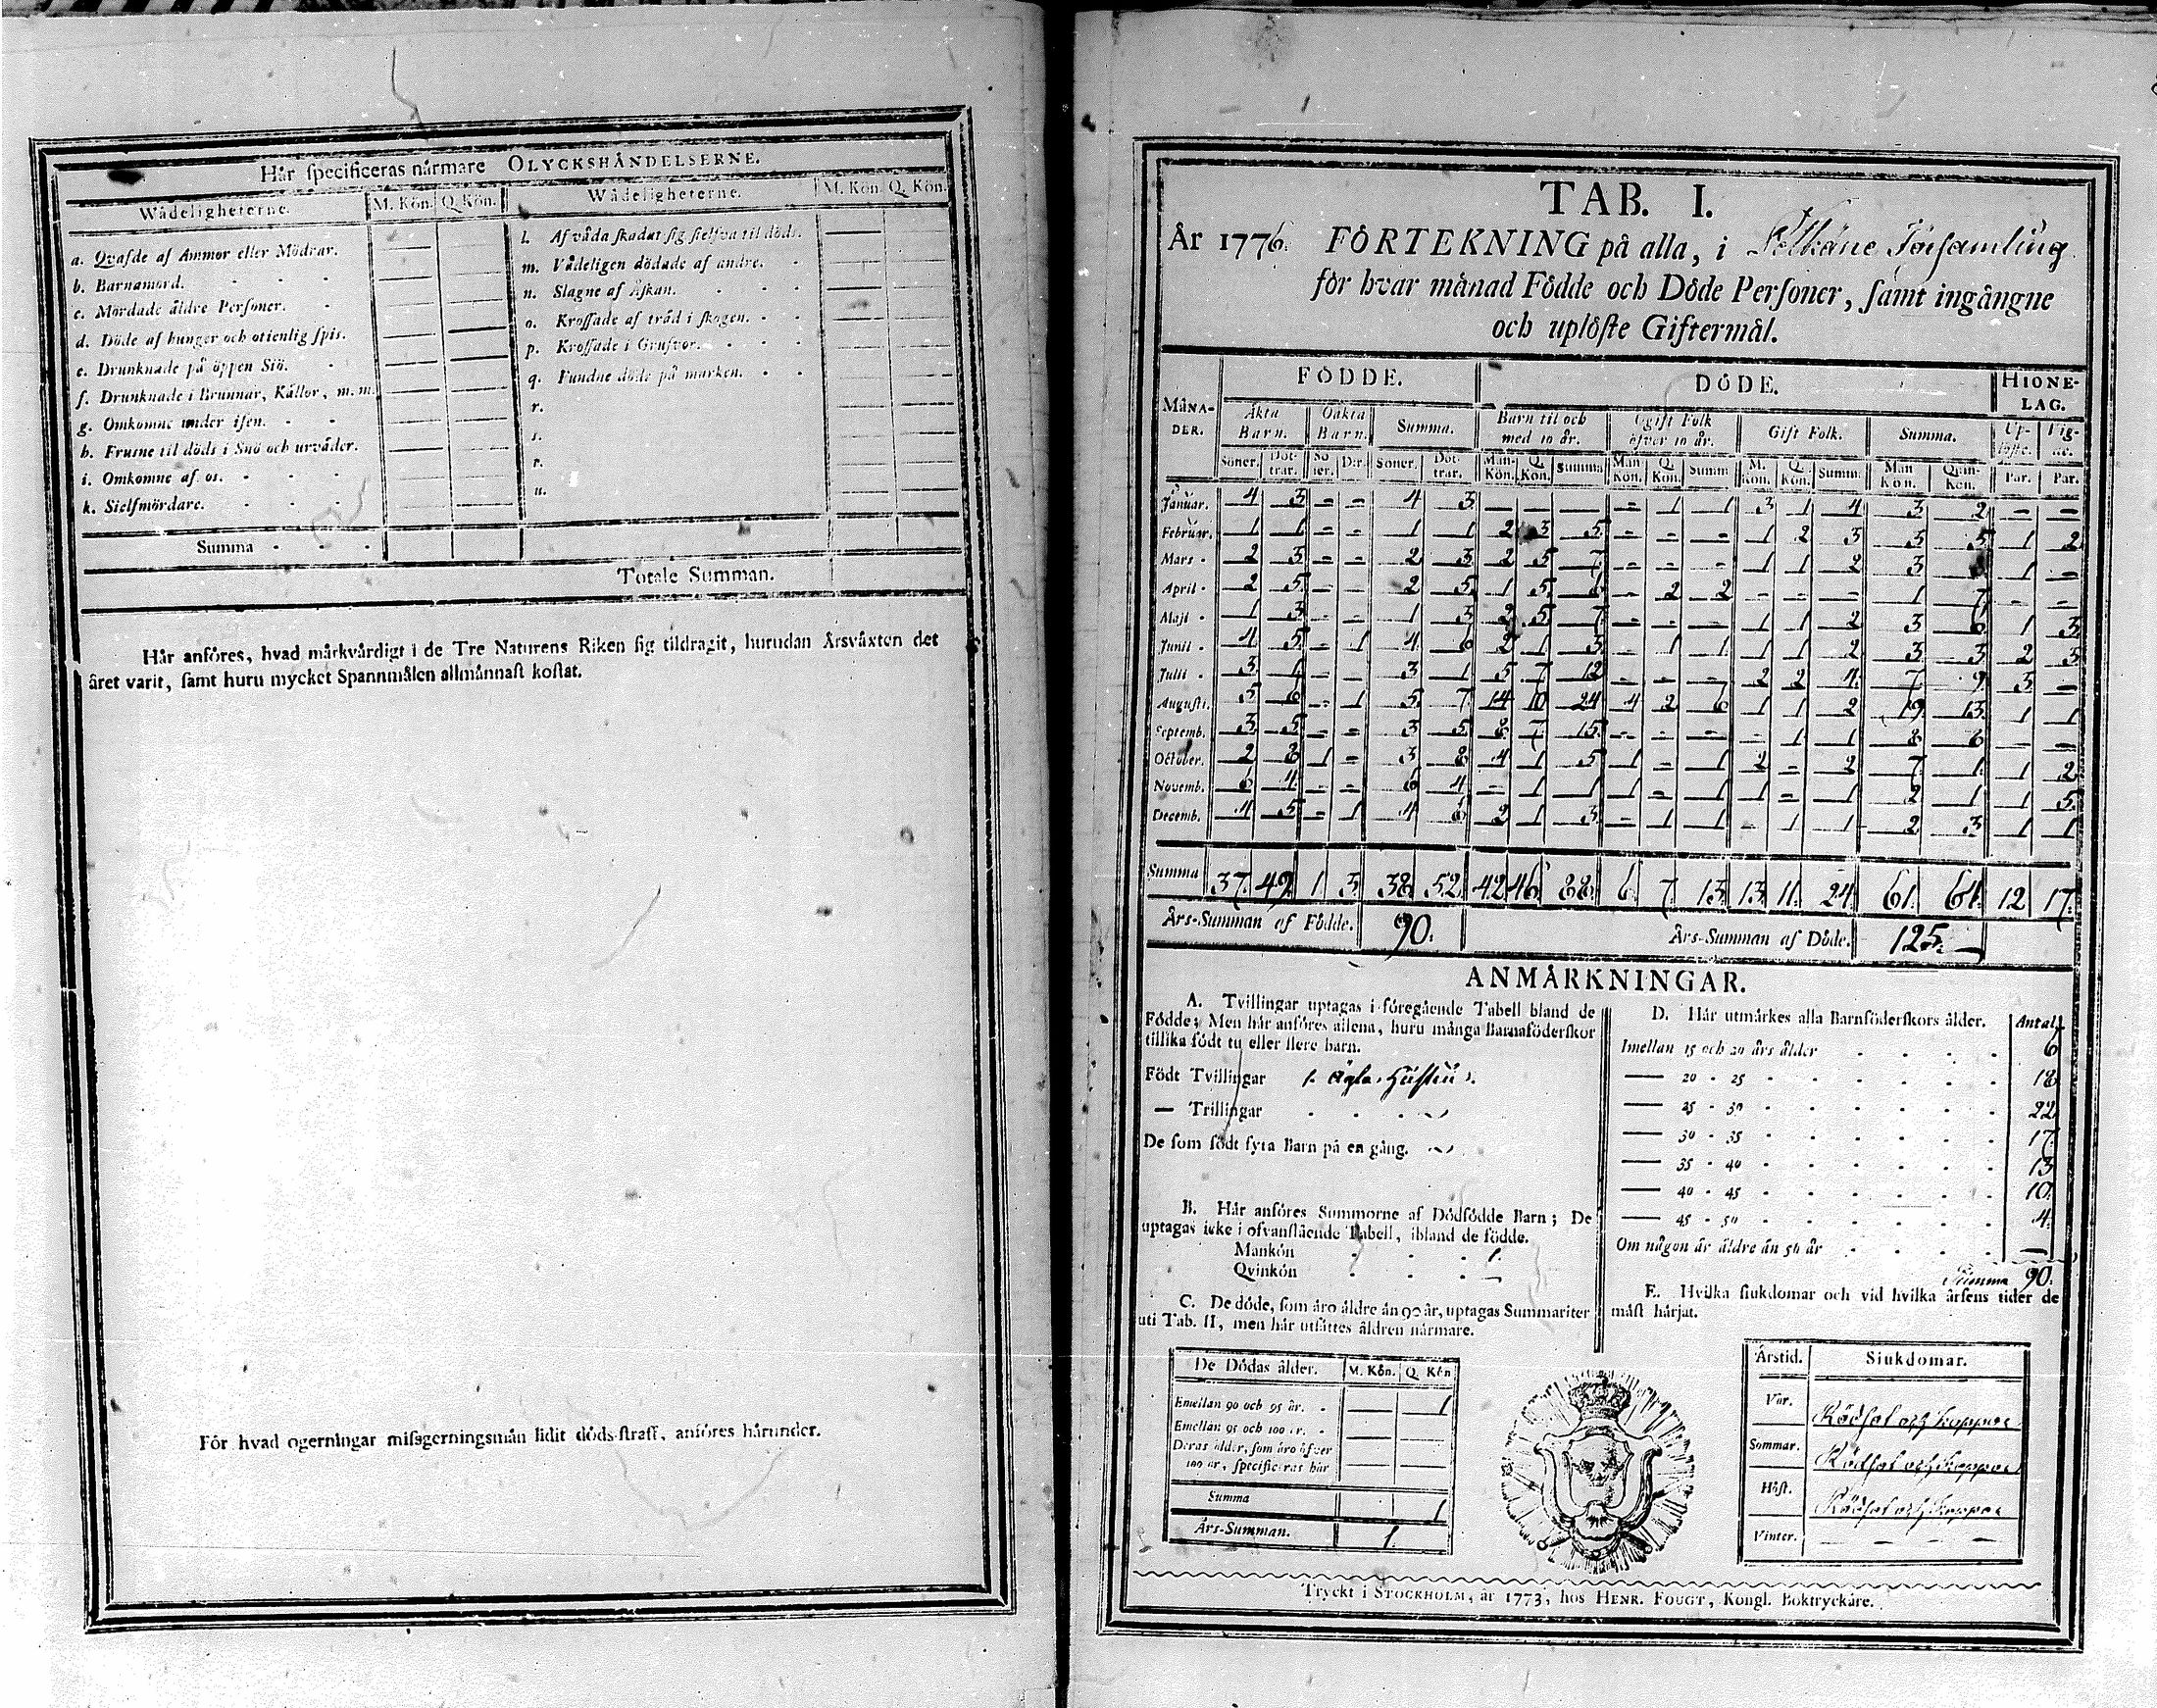 Här specificeras närmare OLYCKSHÄNDELSERNE.
Wådeligheterne. M. Kön. Q. Kön. Wådeligheterne. M. Kön. Q. Kön.
a. Qvafde af Ammor eller Mödrar. — —
b. Barnamord. — —
c. Mördade äldre Personer. — —
d. Döde af hunger och otienlig spis. — —
e. Drunknade på öppen Siö. — —
f. Drunknade i Brunnar, Källor, m. m. — —
g. Omkomne under isen. — —
h. Frusne til döds i Snö och urväder. — —
i. Omkomne af os. — —
k. Sielfmördare. — —
l. Af våda skadat sig sielfva til döds. — —
m. Vådeligen dödade af andre. — —
n. Slagne af Åskan. — —
o. Krossade af träd i skogen. — —
p. Krossade i Grufvor. — —
q. Fundne döde på marken. — —
r. — —
s. — —
t. — —
u. — —
Summa
Totale Summan.
Här anföres, hvad märkvärdigt i de Tre Naturens Riken sig tildragit, hurudan Årsväxten det
året varit, samt huru mycket Spannmålen allmännast kostat.
För hvad ogerningar missgerningsmän lidit döds-straff, anföres härunder.
TAB. I.
År 1776. FÖRTEKNING på alla, i Pelkäne Församling
för hvar månad Födde och Döde Personer, samt ingångne
och uplöste Giftermål.
MÅNADER. FÖDDE. DÖDE. HIONELAG.
Äkta Barn. Oäkta Barn. Summa. Barn til och med 10 år. Ogift Folk öfver 10 år. Gift Folk. Summa. Uplöste. Vigde.
Söner. Döttrar. Söner. D:r. Söner. Döttrar. Man-Kön. Q. Kön. Summa Man Kön. Q. Kön. Summ M. Kön. Q. Kön. Summ. Man Kön. Qvin-Kön. Par. Par.
Januar. 4 3 – – 4 3 — — — – 1 1 3 1 4 3 2 – –
Februar. 1 1 – – 1 1 2 3 5 – – – 1 2 3 3 5 1 2
Mars 2 3 – – 2 3 2 5 7 – – – 1 1 2 3 1 –
April 2 5 – – 2 5 1 5 6 – 2 2 – – – 1 7 – –
Maji 1 3 – – 1 3 2 5 7 – – – 1 1 2 3 6 1 3
Junii 4 5 – 1 4 6 2 1 3 – 1 1 1 1 2 3 3 2 3
Julii 3 1 – – 3 1 5 7 12 – – – 2 2 4 7 9 3 –
Augusti. 5 6 – 1 5 7 14 10 24 4 2 6 1 1 2 19 13 1 1
Septemb. 3 5 – – 3 5 8 7 15 – – – – 1 1 8 8 – –
October. 2 8 1 – 3 8 4 1 5 1 – 1 2 – 2 7 1 1 2
Novemb. 6 4 – – 6 4 – 1 1 1 – 1 1 – 1 2 1 1 5
Decemb. 4 5 – 1 4 6 2 1 3 – 1 1 – 1 1 2 3 1 1
Summa 37. 49. 1 3 38 52 42 46 88 6 7 13 13 11 24 61 64 12 17.
Års-Summan af Födde. 90. Års-Summan af Döde. 125. —
ANMÄRKNINGAR.
A. Tvillingar uptagas i föregående Tabell bland de
Födde; Men här anföres allena, huru många Barnaföderskor
tillika födt tu eller flere barn.
Födt Tvillingar
— Trillingar
De som födt fyra Barn på en gång.
B. Här anföres Summorne af Dödfödde Barn; De
uptagas icke i ofvanstående Tabell, ibland de födde.
Mankön 1.
Qvinkön —
C. De döde, som äro äldre än 90 år, uptagas Summariter
uti Tab. II, men här utsättes åldren närmare.
De Dödas ålder. M. Kön. Q. Kön
Emellan 90 och 95 år. — 1
Emellan 95 och 100 år. — —
Deras ålder, som äro öfver
100 år, specificeras här — —
Summa 1
Års-Summan. 1.
D. Här utmärkes alla Barnföderskors ålder. Antal.
Imellan 15 och 20 års ålder 6
— 20 - 25 18
— 25 - 30 22
— 30 - 35 17
— 35 - 40 13
— 40 - 45 10.
— 45 - 50 4.
Om någon är äldre än 50 år —
Summa 90.
E. Hvilka siukdomar och vid hvilka årsens tider de
mäst härjat.
Årstid. Siukdomar.
Vår. Rödsot och koppor
Sommar. Rödsot och koppor
Höst. Rödsot och koppor
Vinter. — — — —
Tryckt i STOCKHOLM, år 1773, hos HENR. FOUGT, Kongl. Boktryckare.